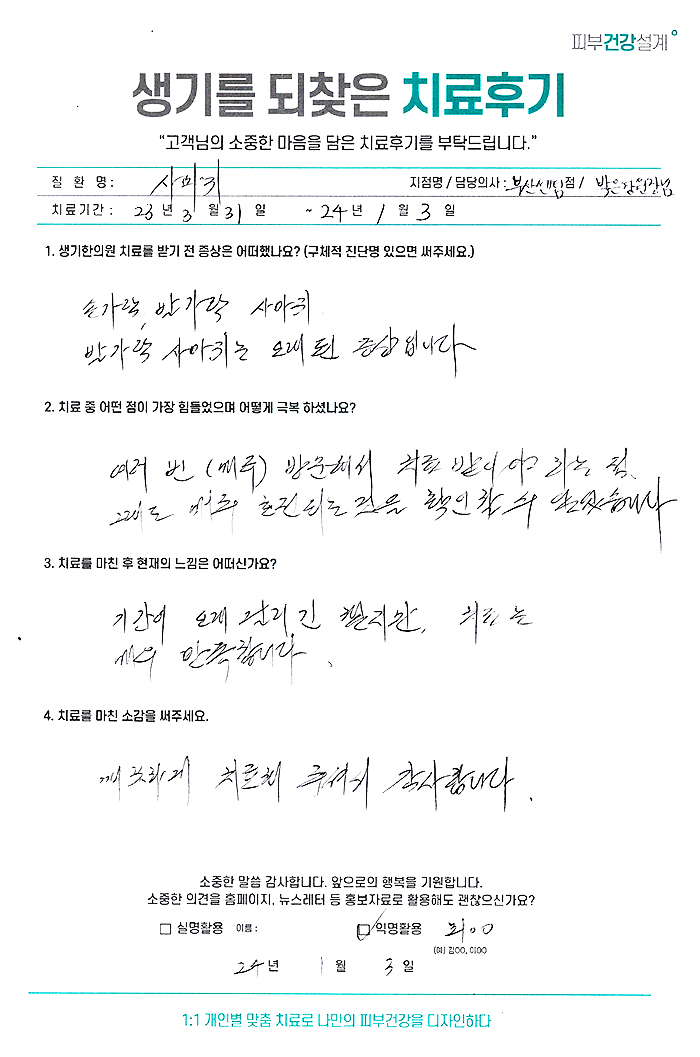 피부건강설계
생기를 되찾은 치료후기
"고객님의 소중한 마음을 담은 치료후기를 부탁드립니다."
질 환 명 : 사마귀 지점명 / 담당의사 : 부산센텀점 / 박은 원장님
치료기간 : 23년 3월 31일 ~ 24년 1월 3일
1. 생기한의원 치료를 받기 전 증상은 어떠했나요? (구체적 진단명 있으면 써주세요.)
손가락, 발가락 사마귀
발가락 사마귀는 오래된 증상입니다
2. 치료 중 어떤 점이 가장 힘들었으며 어떻게 극복 하셨나요?
여러 번 (매주) 방문해서 치료 받아야 하는 점.
그래도 매주 호전되는 것을 확인할 수 있었습니다
3. 치료를 마친 후 현재의 느낌은 어떠신가요?
기간이 오래 걸리긴 했지만, 치료는
매우 만족합니다.
4. 치료를 마친 소감을 써주세요.
깨끗하게 치료해 주셔서 감사합니다.
소중한 말씀 감사합니다. 앞으로의 행복을 기원합니다.
소중한 의견을 홈페이지, 뉴스레터 등 홍보자료로 활용해도 괜찮으신가요?
□ 실명활용 이름 : ☑ 익명활용 최OO
(예) 김OO, 이OO
24년 1월 3일
1:1 개인별 맞춤 치료로 나만의 피부건강을 디자인하다